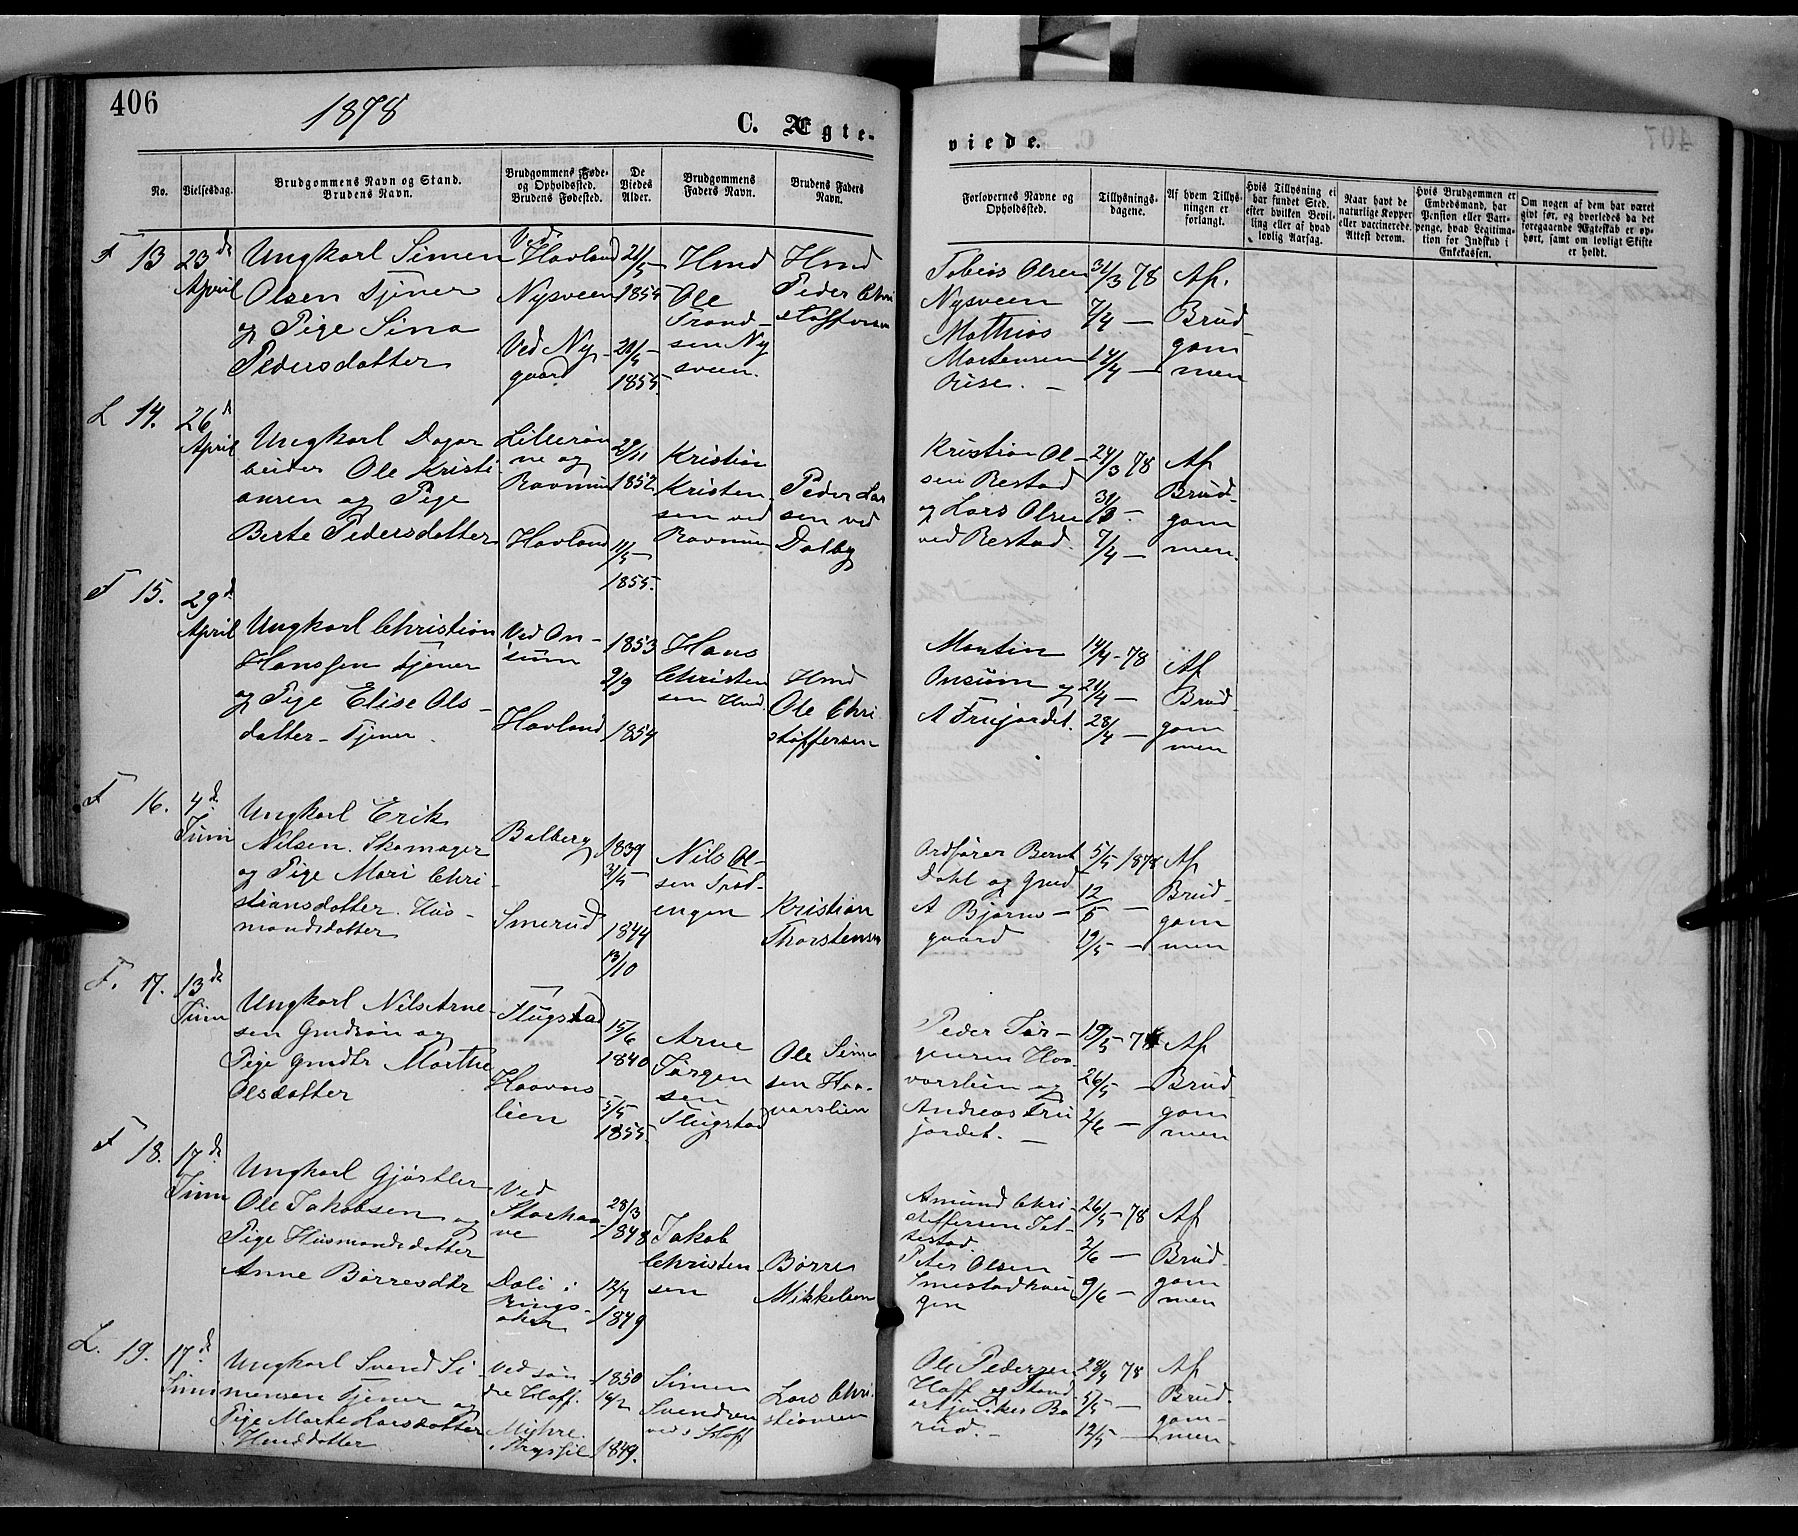 406
1878
C. Ægte-
viede.
No.
Vielsesdag.
Brudgommens Navn og Stand.
Brudens Navn.
Brudgommens Føde-
og Opholdssted.
Brudens Fødested.
De
Viedes
Alder.
Brudgommens
Faders Navn.
Brudens Faders
Navn.
Forlovernes Navne og
Opholdssted.
Tillysnings-
dagene.
Af hvem Tillys-
ningen er
forlangt.
Hvis Tillysning ei
har fundet Sted,
efter hvilken Bevil-
ling eller af hvad
lovlig Aarsag.
Naar havt de
naturlige Kopper
eller vaccinerede.
Attest derom.
Hvis Brudgommen er
Embedsmand, har
Pension eller Vart-
penge, hvad Legitima-
tion for Indskud i
Enkekassen.
Om nogen af dem har været
givt før, og hvorledes da det
foregaaende Ægteskab er op-
hørt, samt om lovligt Skifte
er holdt.
F 13 23de
April
Ungkarl Simen
Olsen Tjener
og Pige Sina
Pedersdatter
Ved
Hovland
Nysveen
Ved Ny-
gaard
21/5
1854
21/4
1855
Hmd
Ole
Trond-
sen Ny
sveen.
Hmd
Peder Chri
stoffersen
Tobias Olsen
Nysveen
Mathias
Mortensen
31/3 78
7/4 —
14/4 —
Af
Brud-
gom
men
L 14. 26d
April
Ungkarl Dagar
beider Ole Kristi
ansen og Pige
Berte Pedersdatter
Ravnum
Hovland
29/11
1852
11/5
1855.
Kristian
Kristen-
sen ved
Ravnum
Peder Lar
sen ved
Dalby
Kristian Ol-
sen Restad
og Lars Olsen
ved Restad.
24/3 78
31/3 -
7/4 —
Af
Brud-
gom
men.
F 15. 29d
April
Ungkarl Christian
Hanssen Tjener
og Pige Elise Ols-
datter - Tjener.
Ved On-
sum
Hovland
1853
2/9
1854
Hans
Christen
sen Hmd
Hmd
Ole Chri
stoffersen
Martin
Onsum og
A Fruejordet.
14/4 - 78
21/4 —
28/4 —
Af
Brud-
gom
men
F 16. 4d
Juni
Ungkarl Erik
Nilsen. Skomager
og Pige Mari Chri-
stiansdatter. Hus-
mandsdatter
Balberg
Smerud
1839
31/5
1844
13/10
Nils Ol-
sen Trod-
engen
Kristian
Thorstensen
Ordfører Bernt
Dahl og Gmd
A Bjørns-
gaard
5/5 1878
12/5 —
19/5 —
Af
Brud-
gom
men
F. 17. 13de
Juni
Ungkarl Nils Arne-
sen Gmdsøn og
Pige Gmdtr Marthe
Olsdatter
Flugstad
Haavars
lien
15/6
1840
5/5
1855.
Arne
Jørgen
sen
Flugstad
Ole Simen
sen Haa-
varslien
Peder Jør-
gensen Haa-
varslien og
Andreas Frue
jordet. —
19/5 - 78
26/5 —
2/6 —
Af
Brud
gom
men
F 18. 17d
Juni
Ungkarl Gjørtler
Ole Jakobsen og
Pige Husmandsdatter
Anne Børresdtr
Ved
Storhaa-
ve
Dali i
Rings-
aker
28/3
1848
12/7
1849
Jakob
Christen-
sen
Børre
Mikkelsen
Amund Chri-
stoffersen Jet-
sestad.
Peter Olsen
Smestadhau
gen
26/5 - 78
2/6 —
9/6 —
Af
Brud-
gom
men
L. 19. 17d
Juni
Ungkarl Svend Si-
mensen Tjener og
Pige Marte Larsdatter
Hmddatter
Ved søn-
dre Hoff.
Myhre
i Trysil
1850
14/2
1849.
Simen
Svendsen
ved s Hoff
Lars Chri-
stiansen
Ole Pedersen
28/4 78
5/5 —
12/5 —
Af
Brud-
gom-
men.